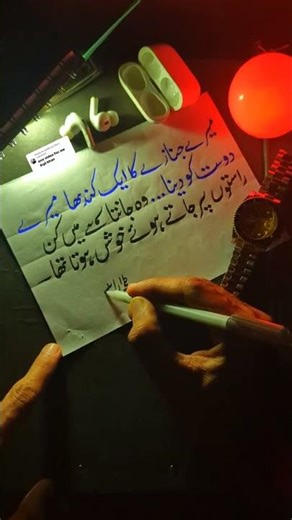 میرے جنازے کا ایک کندھا میرے
دوست کو دینا... وہ جانتا ہے میں کن
راستوں پر جاتے ہوئے خوش ہوتا تھا